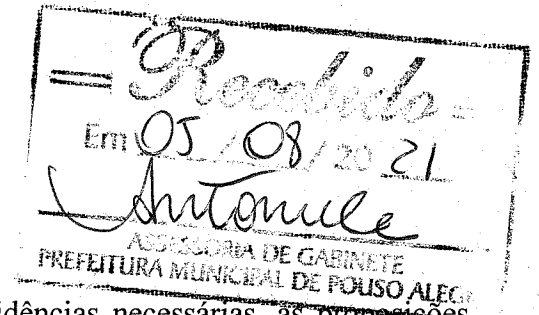 Recebido
Em 05 / 08 / 20 21
ASSESSORIA DE GABINETE
PREFEITURA MUNICIPAL DE POUSO ALEG
idências necessárias, as proposições